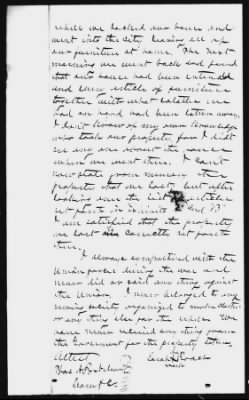 while we locked our house and
went into the city leaving all of
our furniture at home. The next
morning we went back and found
that our house had been entered
and every article of furniture
together with what
had on hand had been taken away.
I don't know of my own knowledge
who took our property for I did
not see any one about the house
when we went there. I can't
now state from memory the
property that we lost but after
looking over the list of articles
set forth in
I am satisfied that the property
we lost is correctly set forth
there.
I always sympathized with the
Union forces during the war and
never did or said any thing against
the Union. I never belonged to any
or any thing else for the
have never received any thing from
the Government for the property taken.
Attest
mark